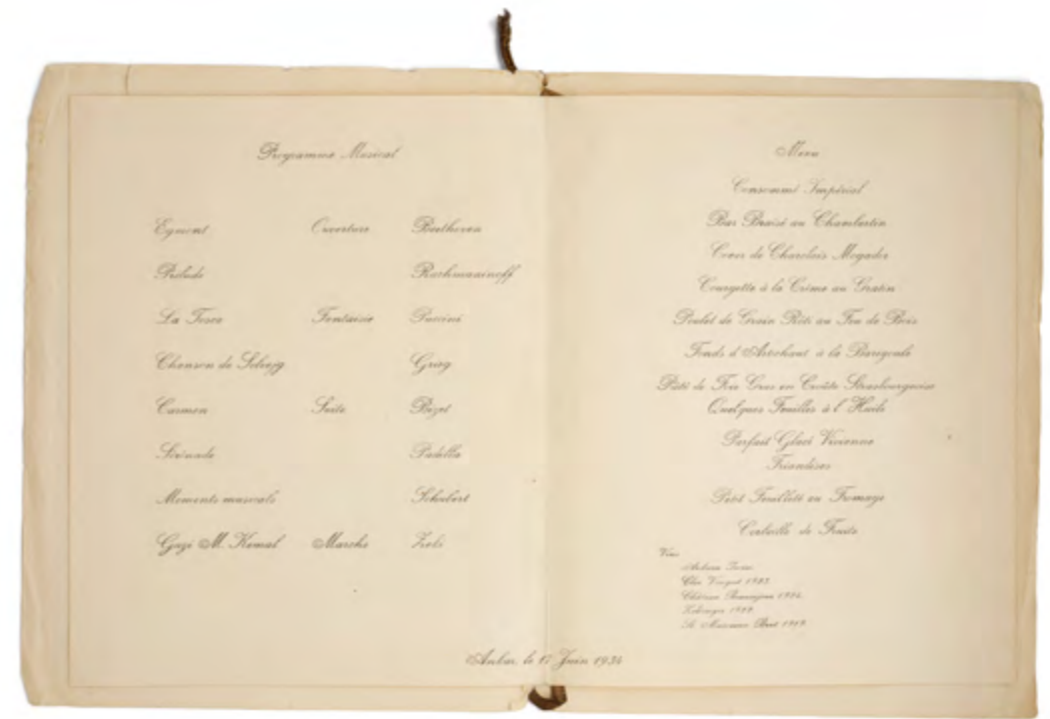 Programme Musical
Egmont Ouverture Beethoven
Prélude Rachmaninoff
La Tosca Fantaisie Puccini
Chanson de Solvejg Grieg
Carmen Suite Bizet
Sérénade Padella
Moments musicals Schubert
Gazi M. Kemal Marche Zeki
Menu
Consommé Impérial
Bar Braisé au Chambertin
Coeur de Charolais Mogador
Courgette à la Crème au Gratin
Poulet de Grain Rôti au Feu de Bois
Fonds d'Artichaut à la Barigoule
Pâté de Foie Gras en Croûte Strasbourgeoise
Quelques Feuilles à l'Huile
Parfait Glacé Vivianne
Friandises
Petit Feuilleté au Fromage
Corbeille de Fruits
Vins
Clos Vougeot
Château
Brut
le 17 Juin 1934